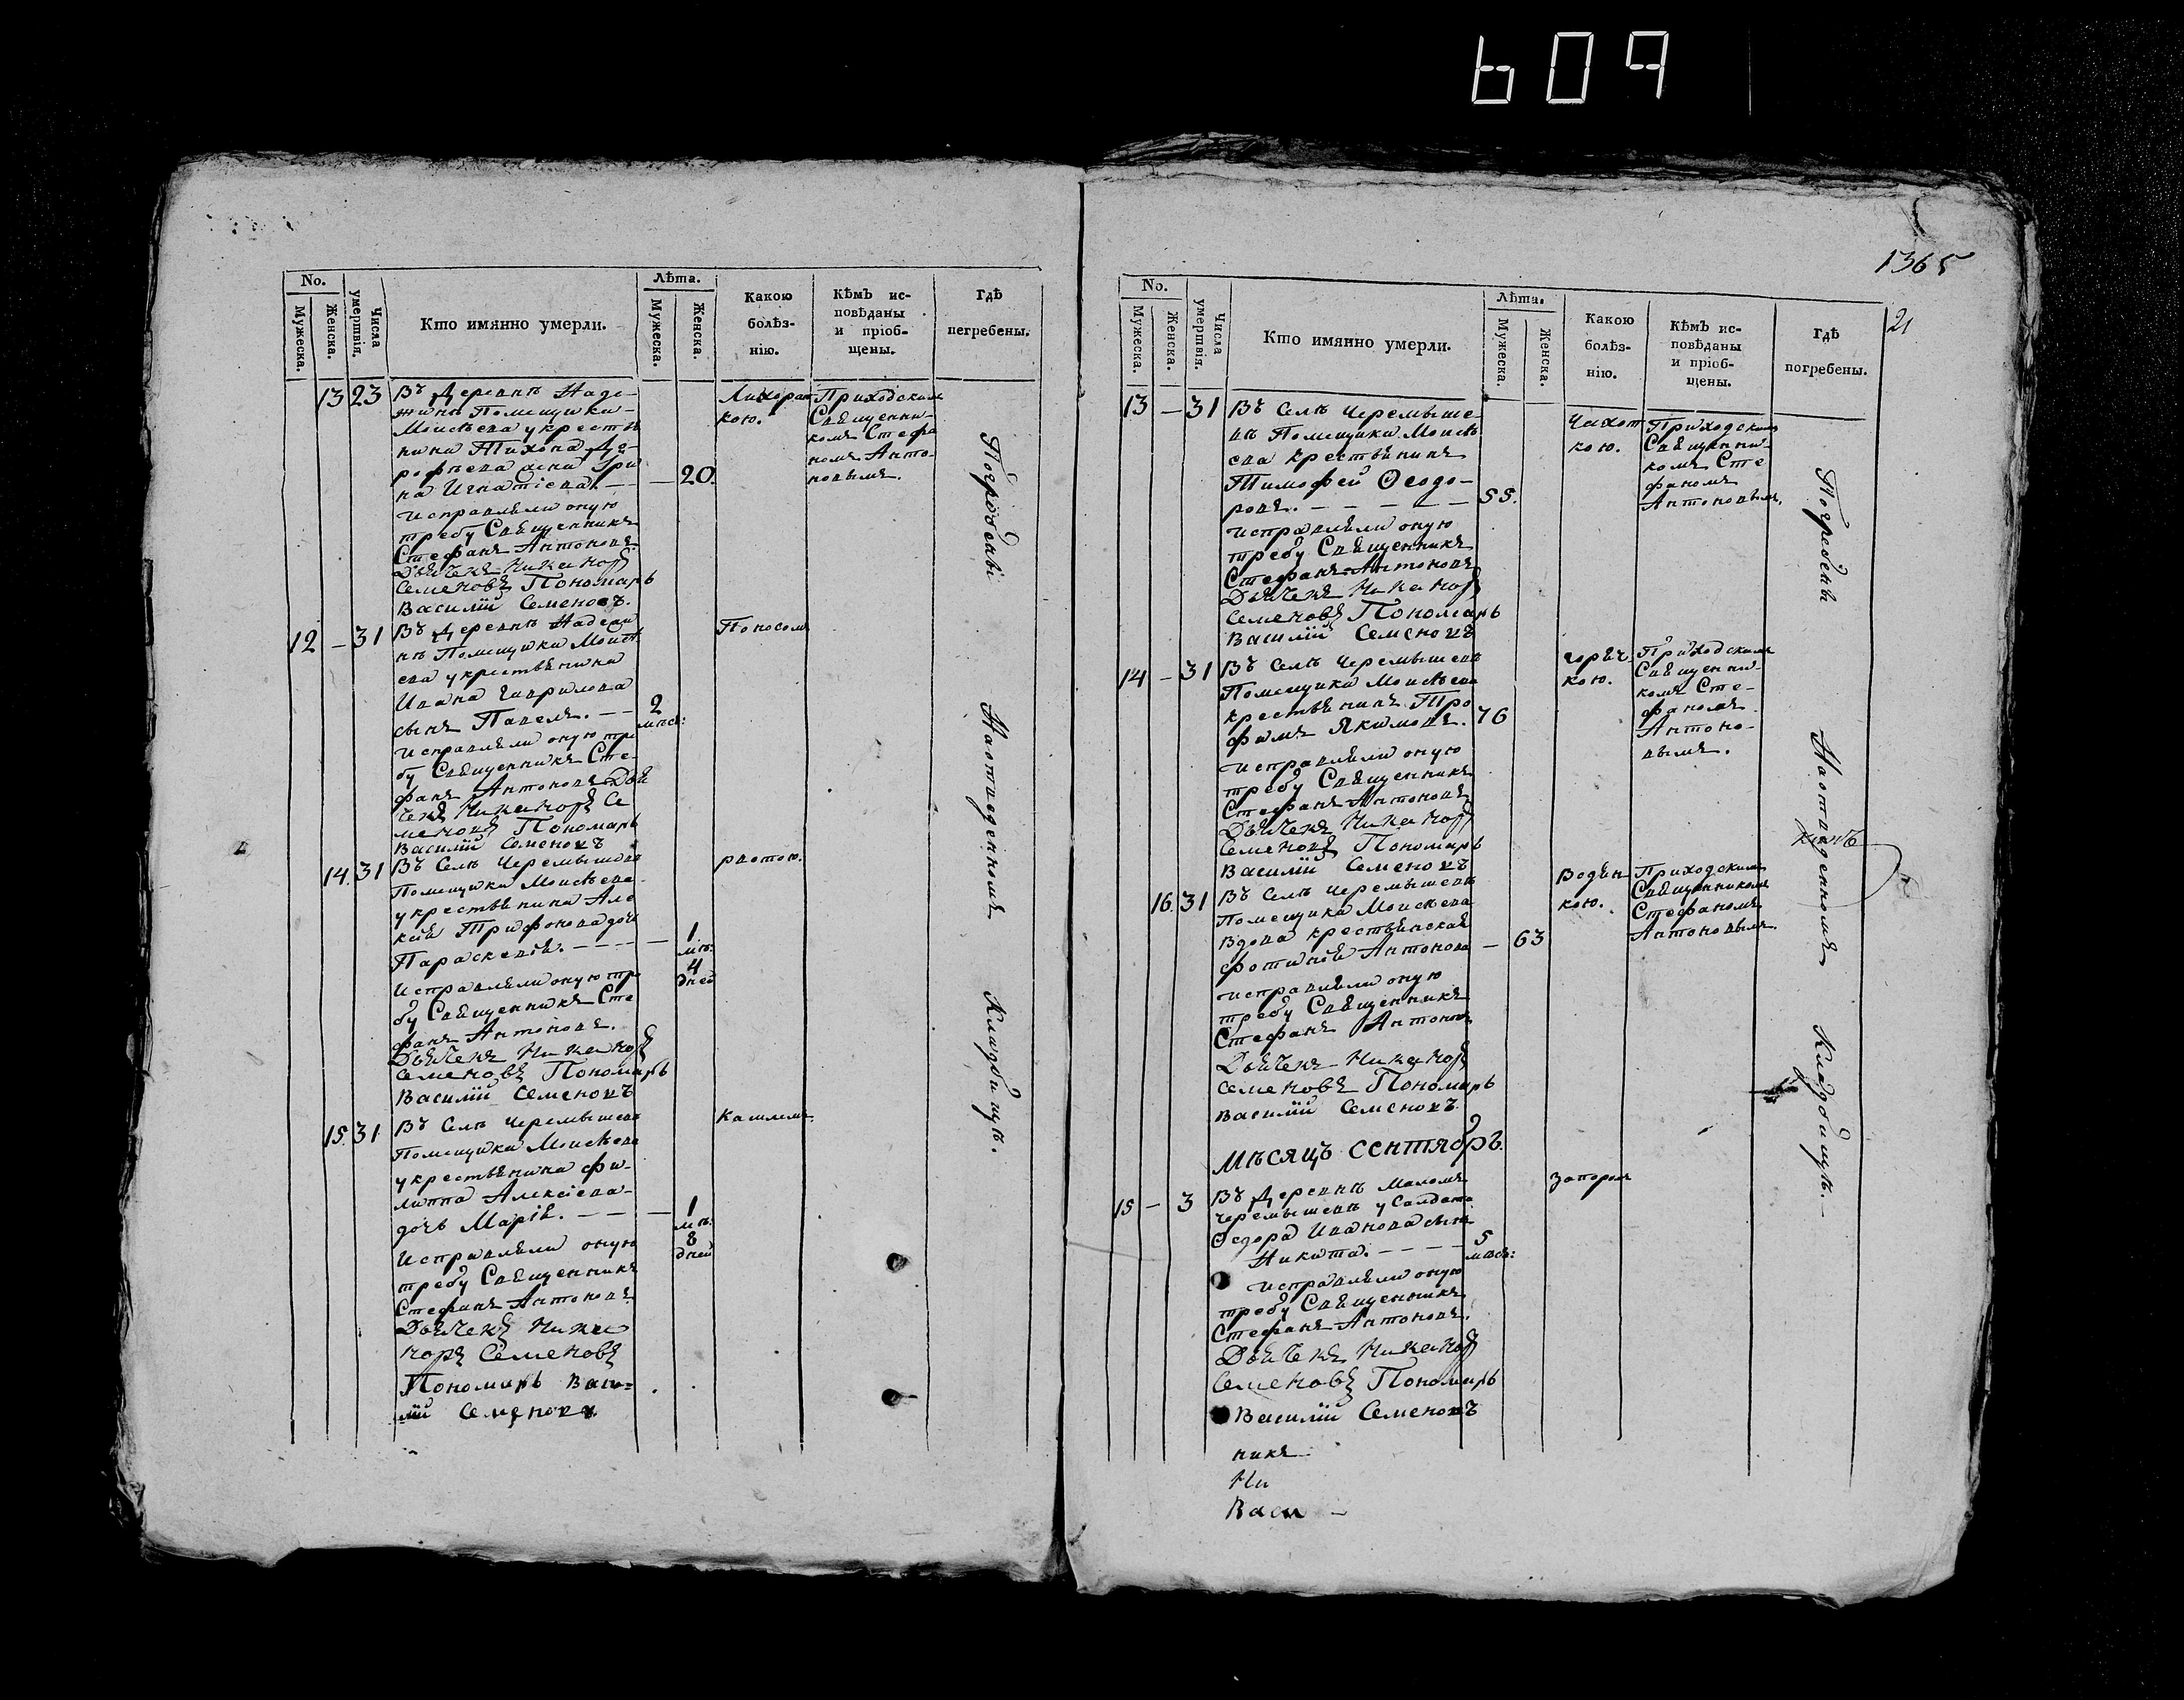 609
No.
Мужеска.
Женска.
Числа умертвія.
Кто имянно умерли.
Лѣта.
Мужеска.
Женска.
Какою
болѣз-
нію.
Кѣмъ ис-
повѣданы
и пріоб-
щены.
Гдѣ
пегребены.
13 23
Въ Деревнѣ Наде-
жинѣ Помещика
Моисѣева у крестья
нина Тихона До-
рофѣева жена Iри
на Игнатіева. — — 20.
исправляли оную
требу Священникъ
Стефанъ Антоновъ
Дьячекъ Никаноръ
Семеновъ Пономарь
Василій Семеновъ.
Лихорад
кою.
Приходскимъ
Священни-
комъ Стефа
номъ Анто-
новымъ.
12 — 31
Въ Деревнѣ Надежи
нѣ Помещика Моисѣ
ева у крестьянина
Ивана Гаврилова
сынъ Павелъ. — — 2
мѣся:
исправляли оную тре
бу Священникъ Сте-
фанъ Антоновъ Дья
чекъ Никаноръ Се
меновъ Пономарь
Василій Семеновъ
Поносомъ
14. 31
Въ Селѣ Черемышевѣ
Помещика Моисѣева
у крестьянина Але
ксѣя Трифонова дочь
Параскевія. — — — — 1
мѣ:
4
дней
исправляли оную тре
бу Священникъ Сте
фанъ Антоновъ.
Дьячекъ Никаноръ
Семеновъ Пономарь
Василій Семеновъ
рвотою.
15. 31
Въ Селѣ Черемышевѣ
Помещика Моисѣева
у крестьянина Фи-
липпа Алексіева
дочь Марія. — — — 1
мѣ:
8
дней
Исправляли оную
требу Священникъ
Стефанъ Антоновъ.
Дьячекъ Ника
норъ Семеновъ
Пономарь Васи=
лій Семеновъ
кашлемъ.
Погребены На отведенномъ Кладбищѣ.
1365
21
No.
Мужеска.
Женска.
Числа умертвія.
Кто имянно умерли.
Лѣта.
Мужеска.
Женска.
Какою
болѣз-
нію.
Кѣмъ ис-
повѣданы
и пріоб-
щены.
Гдѣ
погребены.
13 — 31
Въ Селѣ Черемыше-
вѣ Помещика Моисѣ
ева крестьянинъ
Тимофей Ѳеодо-
ровъ. — — — — — 55.
исправляли оную
требу Священникъ
Стефанъ Антоновъ
Дьячекъ Никаноръ
Семеновъ Пономарь
Василій Семеновъ
Чахот
кою.
Приходскимъ
Священни-
комъ Сте
фаномъ
Антоновымъ.
14 — 31
Въ Селѣ Черемышевѣ
Помещика Моисѣева
крестьянинъ Тро
фимъ Якимовъ. 76
исправляли оную
требу Священникъ
Стефанъ Антоновъ
Дьячекъ Никаноръ
Семеновъ Пономарь
Василій Семеновъ
горяч
кою.
Приходскимъ
Священни
комъ Сте-
фаномъ
Антоно-
вымъ.
16. 31
Въ Селѣ Черемышевѣ
Помещика Моисѣева
Вдова крестьянская
Фотинія Антонова — 63
исправляли оную
требу Священникъ
Стефанъ Антоновъ
Дьячекъ Никаноръ
Семеновъ Пономарь
Василій Семеновъ.
Водян
кою.
Приходскимъ
Священникомъ
Стефаномъ
Антоновымъ.
Мѣсяцъ Сентябрь.
15 — 3
Въ Деревнѣ Маломъ
Черемышевѣ у Салдата
Ѳедора Иванова сынъ
Никита. — — — — 5
мѣся:
исправляли оную
требу Священникъ
Стефанъ Антоновъ.
Дьячекъ Никаноръ
Семеновъ Пономарь
Василій Семеновъ
запоромъ
Погребены На отведенномъ Кладбищѣ.
никъ
Ни
Васи